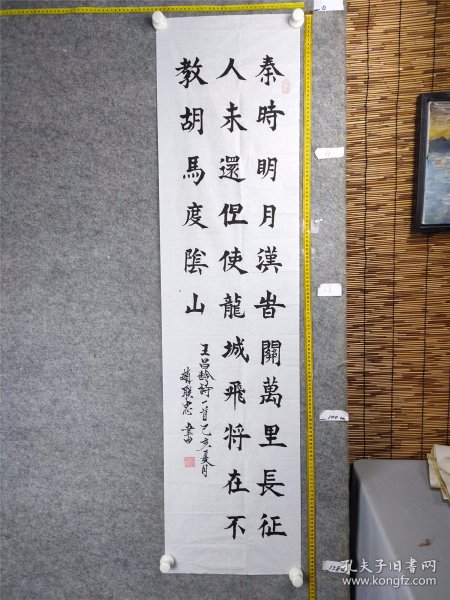 秦時明月漢旹關萬里長征
人未還但使龍城飛将在不
教胡馬度陰山
王昌龄詩一首己亥夏月
联忠書
0
孔夫子旧書网
www.kongfz.com